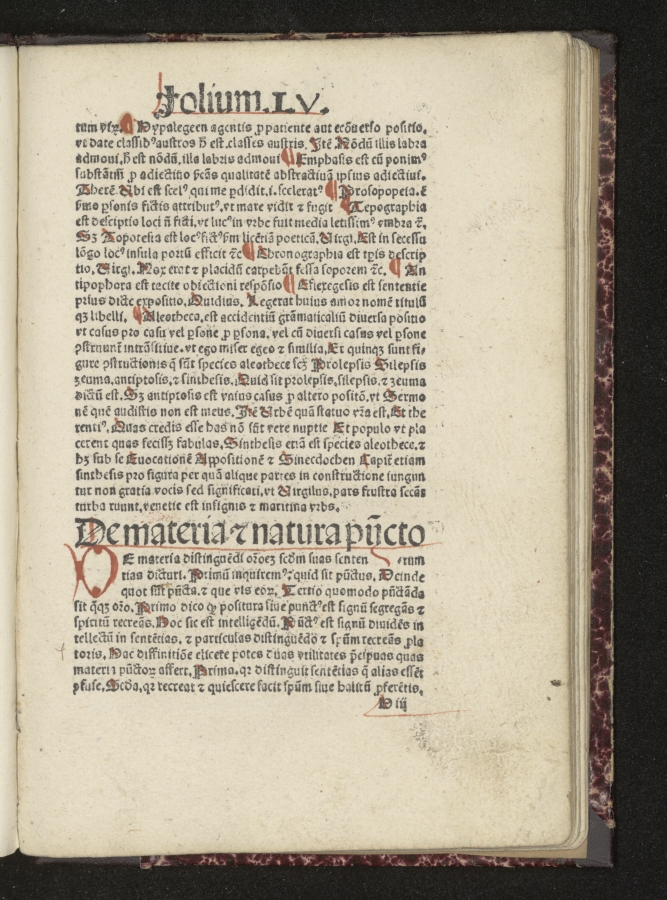 Folium.LV.
tum vſꝫ. Hypalegeen agentis ꝓ patiente aut ecōuerſo poſitio.
vt date claſſibꝰ auſtros h̄ eſt.claſſes auſtris. Itē Nōdū illis labra
admoui.h̄ eſt nōdū.illa labris admoui Emphaſis eſt cū ponimꝰ
ſubſtātiā ꝓ adiectiuo qualitatē abſtractiuā ipſius adiectiui.
There. Ubi eſt ſcelꝰ qui me ꝑdidit.i.ſceleratꝰ Proſopopeia.ē
ꝑſonis fictis attributꝰ.vt mare vidit ⁊ fugit Tepographia
eſt deſcriptio loci nō ficti.vt lucꝰ in vrbe fuit media letiſſimꝰ vmbra ⁊c.
Sꝫ Topoteſia eſt locꝰ fictꝰ licētiā poeticā. Uirgi. Eſt in ſeceſſu
lōgo locꝰ inſula portū efficit ⁊c Chronographia eſt tꝑis deſcrip
tio. Uirgi. Nox erat ⁊ placidū carpebāt feſſa ſoporem ⁊c. An
tipophora eſt tacite obiectioni reſpōſio Efexegeſis eſt ſententie
prius dicte expoſitio. Ouidius. Legerat huius amor nomē titulū
qꝫ libelli. Aleotheca.eſt accidentiū grāmaticaliū diuerſa poſitio
vt caſus pro caſu vel ꝑſone ꝓ ꝑſona. vel cū diuerſi caſus vel ꝑſone
ꝯſtruunt intrāſitiue. vt ego miſer egeo ⁊ ſimilia. Et quinqꝫ ſunt fi⸗
gure ꝯſtructionis q̄ ſūt ſpecies aleothece ſcꝫ Prolepſis Silepſis
zeuma.antiptoſis.⁊ ſintheſis. Quid ſit prolepſis.ſilepſis.⁊ zeuma
dictū eſt. Sꝫ antiptoſis eſt vnius caſus ꝓ altero poſitō.vt Sermo
nē quē audiſtis non eſt meus. Itē Urbē quā ſtatuo vr̄a eſt. Et the
rentiꝰ. Quas credis eſſe has nō ſūt vere nuptie Et populo vt pla
cerent quas feciſſꝫ fabulas. Sintheſis etiā eſt ſpecies aleothece.⁊
hꝫ ſub ſe Euocationē Appoſitionē ⁊ Sinecdochen Capit̄ etiam
ſintheſis pro figura per quā alique partes in conſtructione iungun
tur non gratia vocis ſed ſignificati.vt Uirgilius.pars fruſtra ſecās
turba ruunt.venetie eſt inſignis ⁊ maritina vrbs.
De materia ⁊ natura pūcto
E materia diſtinguēdi or̄oeꝫ ſcd̄m ſuas ſenten⸗
tias dicturi. Primū inquiremꝰ: quid ſit pūctus. Deinde
quot ſūt pūcta.⁊ que vis eoꝝ. Tertio quomodo pūctāda
ſit q̄qꝫ or̄o. Primo dico qꝫ poſitura ſiue punctꝰ eſt ſignū ſegregās ⁊
ſpiritū recreās. Hoc ſic eſt intelligēdū. Pūctꝰ eſt ſignū diuidēs in
tellectū in ſentētias.⁊ particulas diſtinguēdo ⁊ ſp̄um recreās ꝓla
toris. Hac diffinitiōe elicere potes duas vtilitates p̄cipuas quas
materia pūctoꝝ affert. Prima. qꝛ diſtinguit ſentētias q̄ alias eſſēt
ꝯfuſe. Scd̄a. qꝛ recreat ⁊ quieſcere facit ſp̄um ſiue halitū ꝓferētis.
D iij